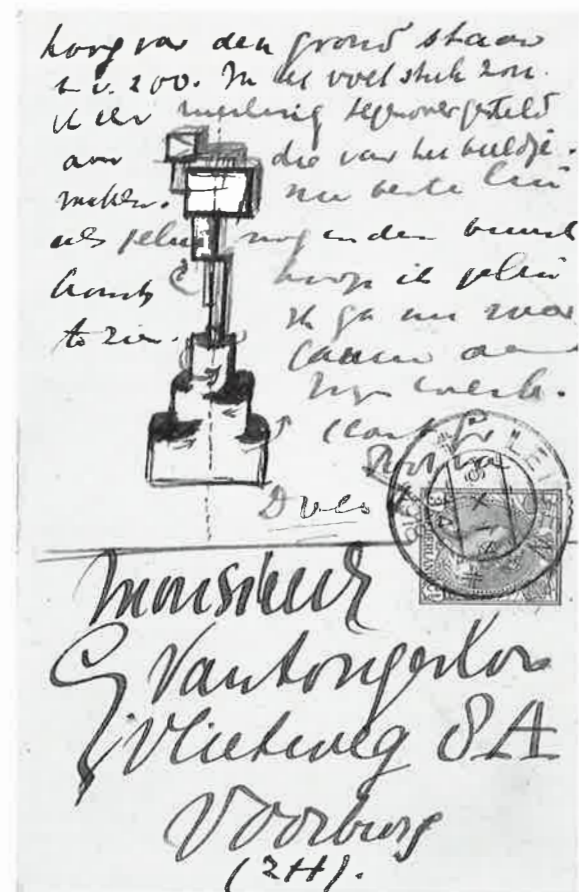 hoog van den grond staan
200. In het voetstuk zou
ik een werking tegenovergesteld
aan die van het beeldje.
maken. nu beste lui
als jelui nog in den buurt
komt hoop ik jelui
te zien. Ik ga nu maar
aan
mijn werk.
Does
LEIDEN
Monsieur
G Vantongerloo
Vlietweg 8A
Voorburg
(ZH).